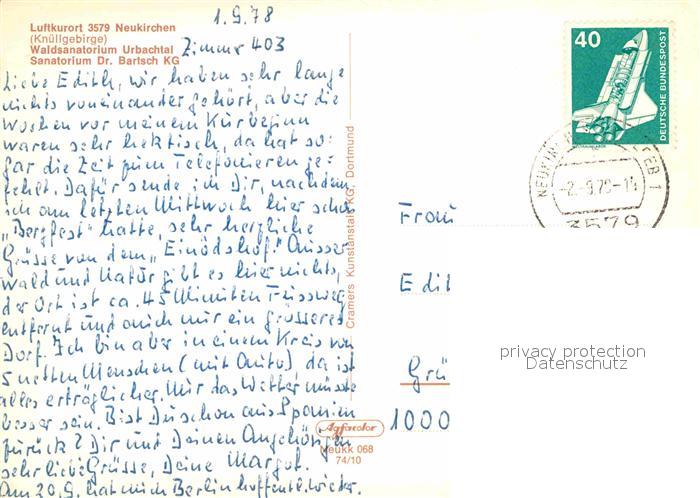 1.9.78
Luftkurort 3579 Neukirchen
(Knüllgebirge)
Waldsanatorium Urbachtal
Sanatorium Dr. Bartsch KG
Zimmer 403
Liebe Edith, wir haben sehr lange
nichts voneinander gehört, aber die
Wochen vor meinem Kurbeginn
waren sehr hektisch, da hat so-
gar die Zeit zum Telefonieren ge-
fehlt. Dafür sende ich Dir, nachdem
ich am letzten Mittwoch hier schon
"Bergfest" hatte, sehr herzliche
Grüsse von dem "Einödshof". Ausser
Wald und Natur gibt es hier nichts,
der Ort ist ca. 45 Minuten Fussweg
entfernt und auch nur ein grösseres
Dorf. Ich bin aber in einem Kreis von
5 netten Menschen (mit Auto), da ist
alles erträglicher. Nur das Wetter müsste
besser sein. Bist Du schon aus Spanien
zurück? Dir und Deinen Angehörigen
sehr liebe Grüsse, Deine Margot.
Am 20.9. hat mich Berlin hoffentl. wieder.
Cramers Kunstanstalt KG, Dortmund
Agfacolor
Neukk 068
74/10
40
DEUTSCHE BUNDESPOST
-2.-9.78-14
3579
Frau
Edit
Grü
1000
privacy protection
Datenschutz